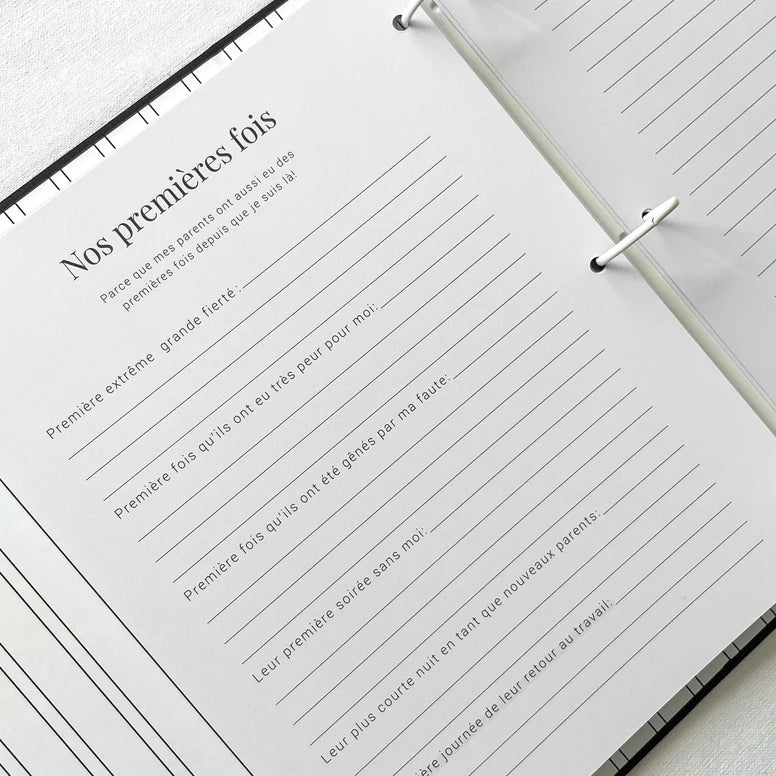 Nos premières fois
Parce que mes parents ont aussi eu des
premières fois depuis que je suis là!
Première extrême grande fierté:
Première fois qu'ils ont eu très peur pour moi:
Première fois qu'ils ont été gênés par ma faute:
Leur première soirée sans moi:
Leur plus courte nuit en tant que nouveaux parents:
journée de leur retour au travail: